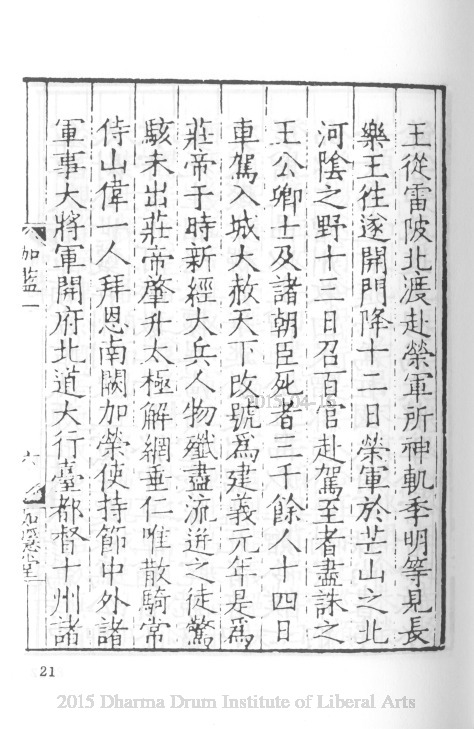 王從雷陂北渡赴榮軍所神軌季明等見長
樂王往遂開門降十二日榮軍於芒山之北
河陰之野十三日召百官赴駕至者盡誅之
王公卿士及諸朝臣死者三千餘人十四日
車駕入城大赦天下改號爲建義元年是爲
莊帝于時新經大兵人物殲盡流迸之徒驚
駭未出莊帝肇升太極解網垂仁唯散騎常
侍山偉一人拜恩南闕加榮使持節中外諸
軍事大將軍開府北道大行臺都督十州諸
伽藍一
六
如隱堂
21
2015-04-
2015 Dharma Drum Institute of Liberal Arts